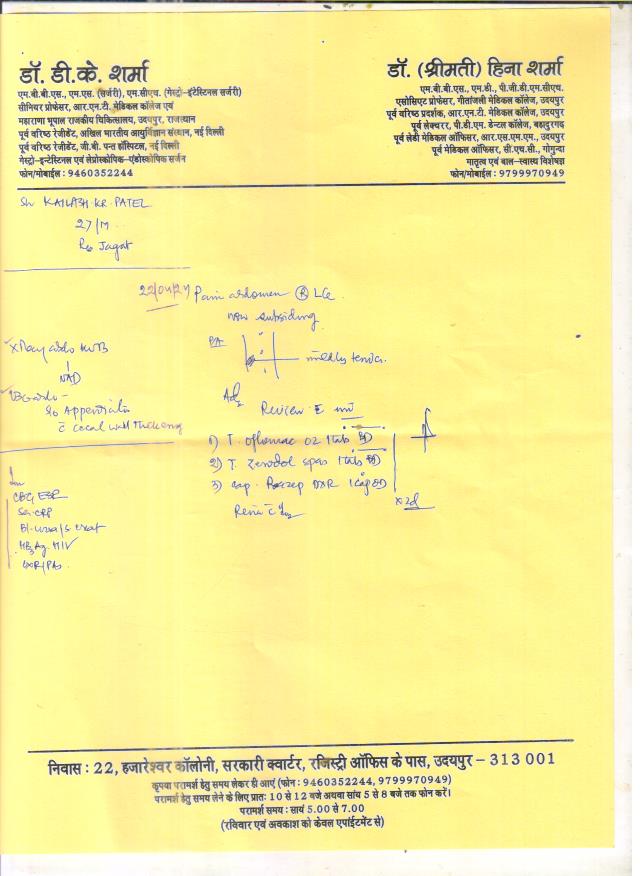 डॉ. डी.के. शर्मा
एम.बी.बी.एस., एम.एस. (सर्जरी), एम.सीएच. (गेस्ट्रो-इंटेस्टिनल सर्जरी)
सीनियर प्रोफेसर, आर.एन.टी. मेडिकल कॉलेज एवं
महाराणा भूपाल राजकीय चिकित्सालय, उदयपुर, राजस्थान
पूर्व वरिष्ठ रेजीडेंट, अखिल भारतीय आयुर्विज्ञान संस्थान, नई दिल्ली
पूर्व वरिष्ठ रेजीडेंट, जी.बी. पन्त हॉस्पिटल, नई दिल्ली
गेस्ट्रो-इन्टेस्टिनल एवं लेप्रोस्कोपिक-एंडोस्कोपिक सर्जन
फोन/मोबाईल : 9460352244
डॉ. (श्रीमती) हिना शर्मा
एम.बी.बी.एस., एम.डी., पी.जी.डी.एम.सीएच.
एसोसिएट प्रोफेसर, गीतांजली मेडिकल कॉलेज, उदयपुर
पूर्व वरिष्ठ प्रदर्शक, आर.एन.टी. मेडिकल कॉलेज, उदयपुर
पूर्व लेक्चरर, पी.डी.एम. डेन्टल कॉलेज, बहादुरगढ़
पूर्व लेडी मेडिकल ऑफिसर, आर.एस.एम.एम., उदयपुर
पूर्व मेडिकल ऑफिसर, सी.एच.सी., गोगुन्दा
मातृत्व एवं बाल-स्वास्थ्य विशेषज्ञ
फोन/मोबाईल : 9799970949
Sh KAILASH KR. PATEL
27/M
R/o Jagat
Pain abdomen (R)
now subsiding
PA
mildly tender.
Xray abdo KUB
NAD
s/o Appendicitis
c cecal wall thickening
Adv
Review c inv
1) T. Oflomac OZ 1 tab BD
2) T. Zerodol spas 1 tab BD
3) Cap. DXR 1 cap OD
x 2d
Inv
CBC, ESR
Ser CRP
Bl. urea/S. creat
HIV
CXR/PA
निवास : 22, हजारेश्वर कॉलोनी, सरकारी क्वार्टर, रजिस्ट्री ऑफिस के पास, उदयपुर - 313 001
कृपया परामर्श हेतु समय लेकर ही आएं (फोन : 9460352244, 9799970949)
परामर्श हेतु समय लेने के लिए प्रातः 10 से 12 बजे अथवा सांय 5 से 8 बजे तक फोन करें।
परामर्श समय : सायं 5.00 से 7.00
(रविवार एवं अवकाश को केवल एपॉईंटमेंट से)